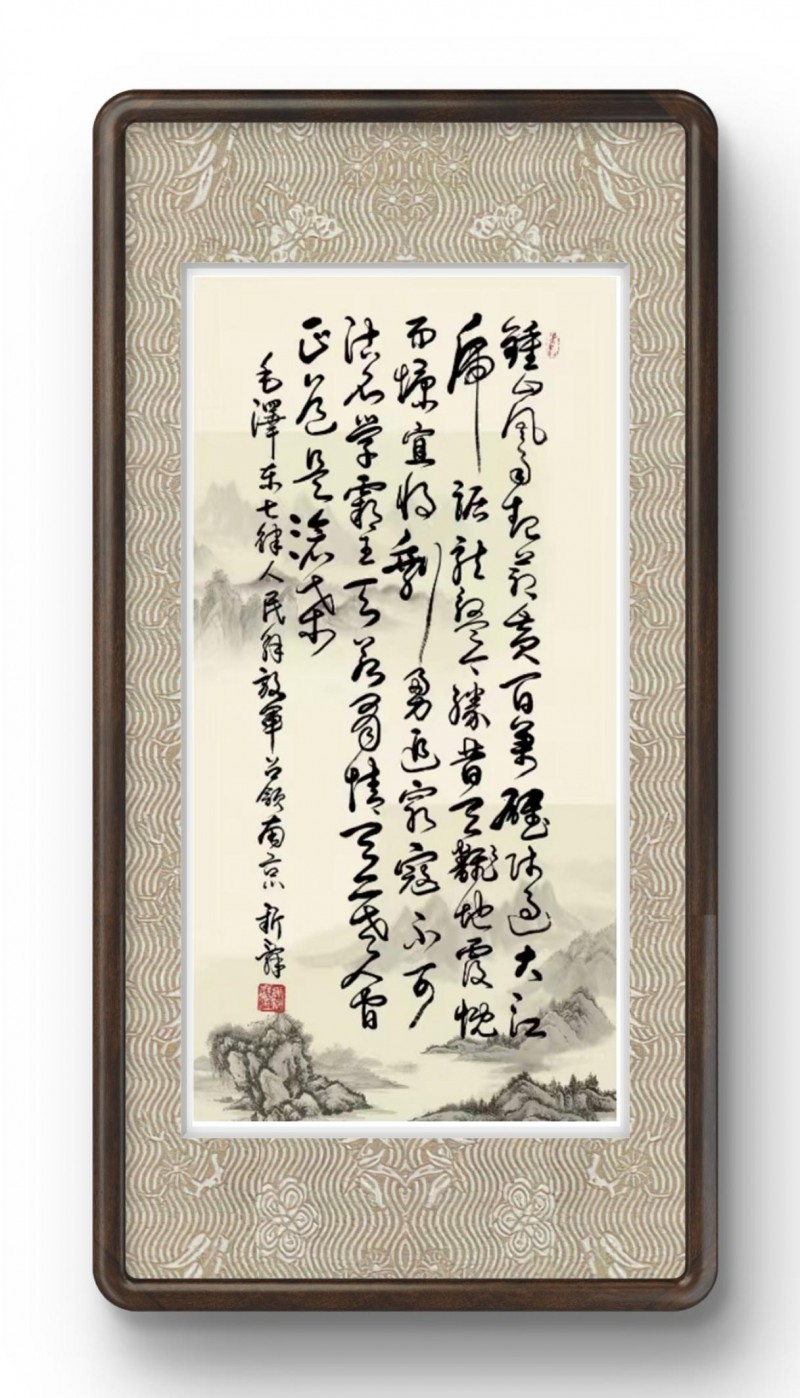 鍾山風雨起蒼黄百萬雄師過大江
虎踞龍盤今勝昔天翻地覆慨
而慷宜將剩勇追窮寇不可
沽名学霸王天若有情天亦老人間
正道是滄桑
毛澤东七律人民解放軍占領南京 新